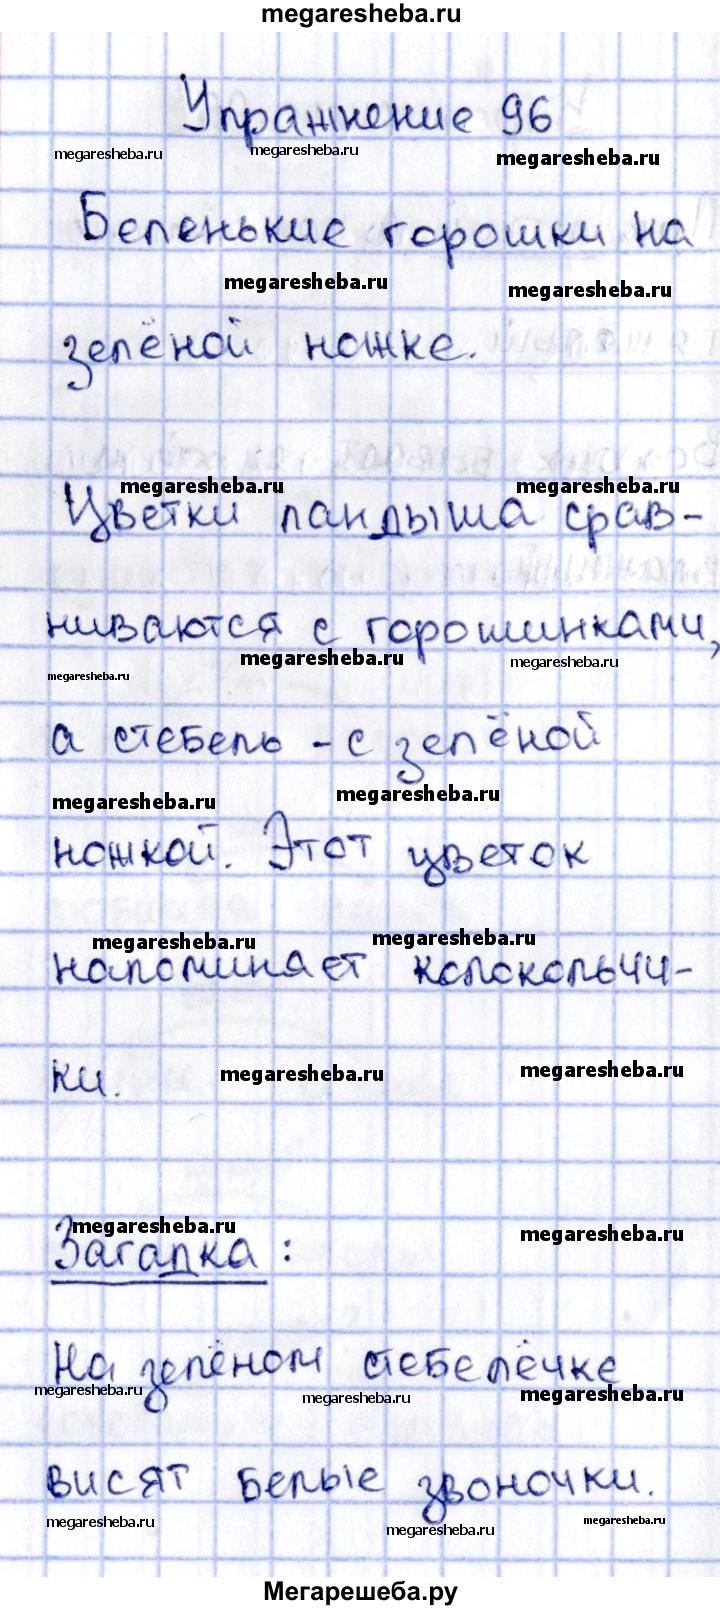 megaresheba.ru
Упражнение 96
megaresheba.ru megaresheba.ru megaresheba.ru
Беленькие горошки на
megaresheba.ru megaresheba.ru
зелёной ножке.
megaresheba.ru megaresheba.ru
Цветки ландыша срав-
ниваются с горошинками,
megaresheba.ru megaresheba.ru megaresheba.ru
а стебель - с зелёной
megaresheba.ru megaresheba.ru
ножкой. Этот цветок
megaresheba.ru megaresheba.ru
напоминает колокольчи-
ки.
megaresheba.ru megaresheba.ru
megaresheba.ru megaresheba.ru
Загадка:
На зелёном стебелёчке
megaresheba.ru megaresheba.ru megaresheba.ru
висят белые звоночки.
megaresheba.ru megaresheba.ru megaresheba.ru
Мегарешеба.ру